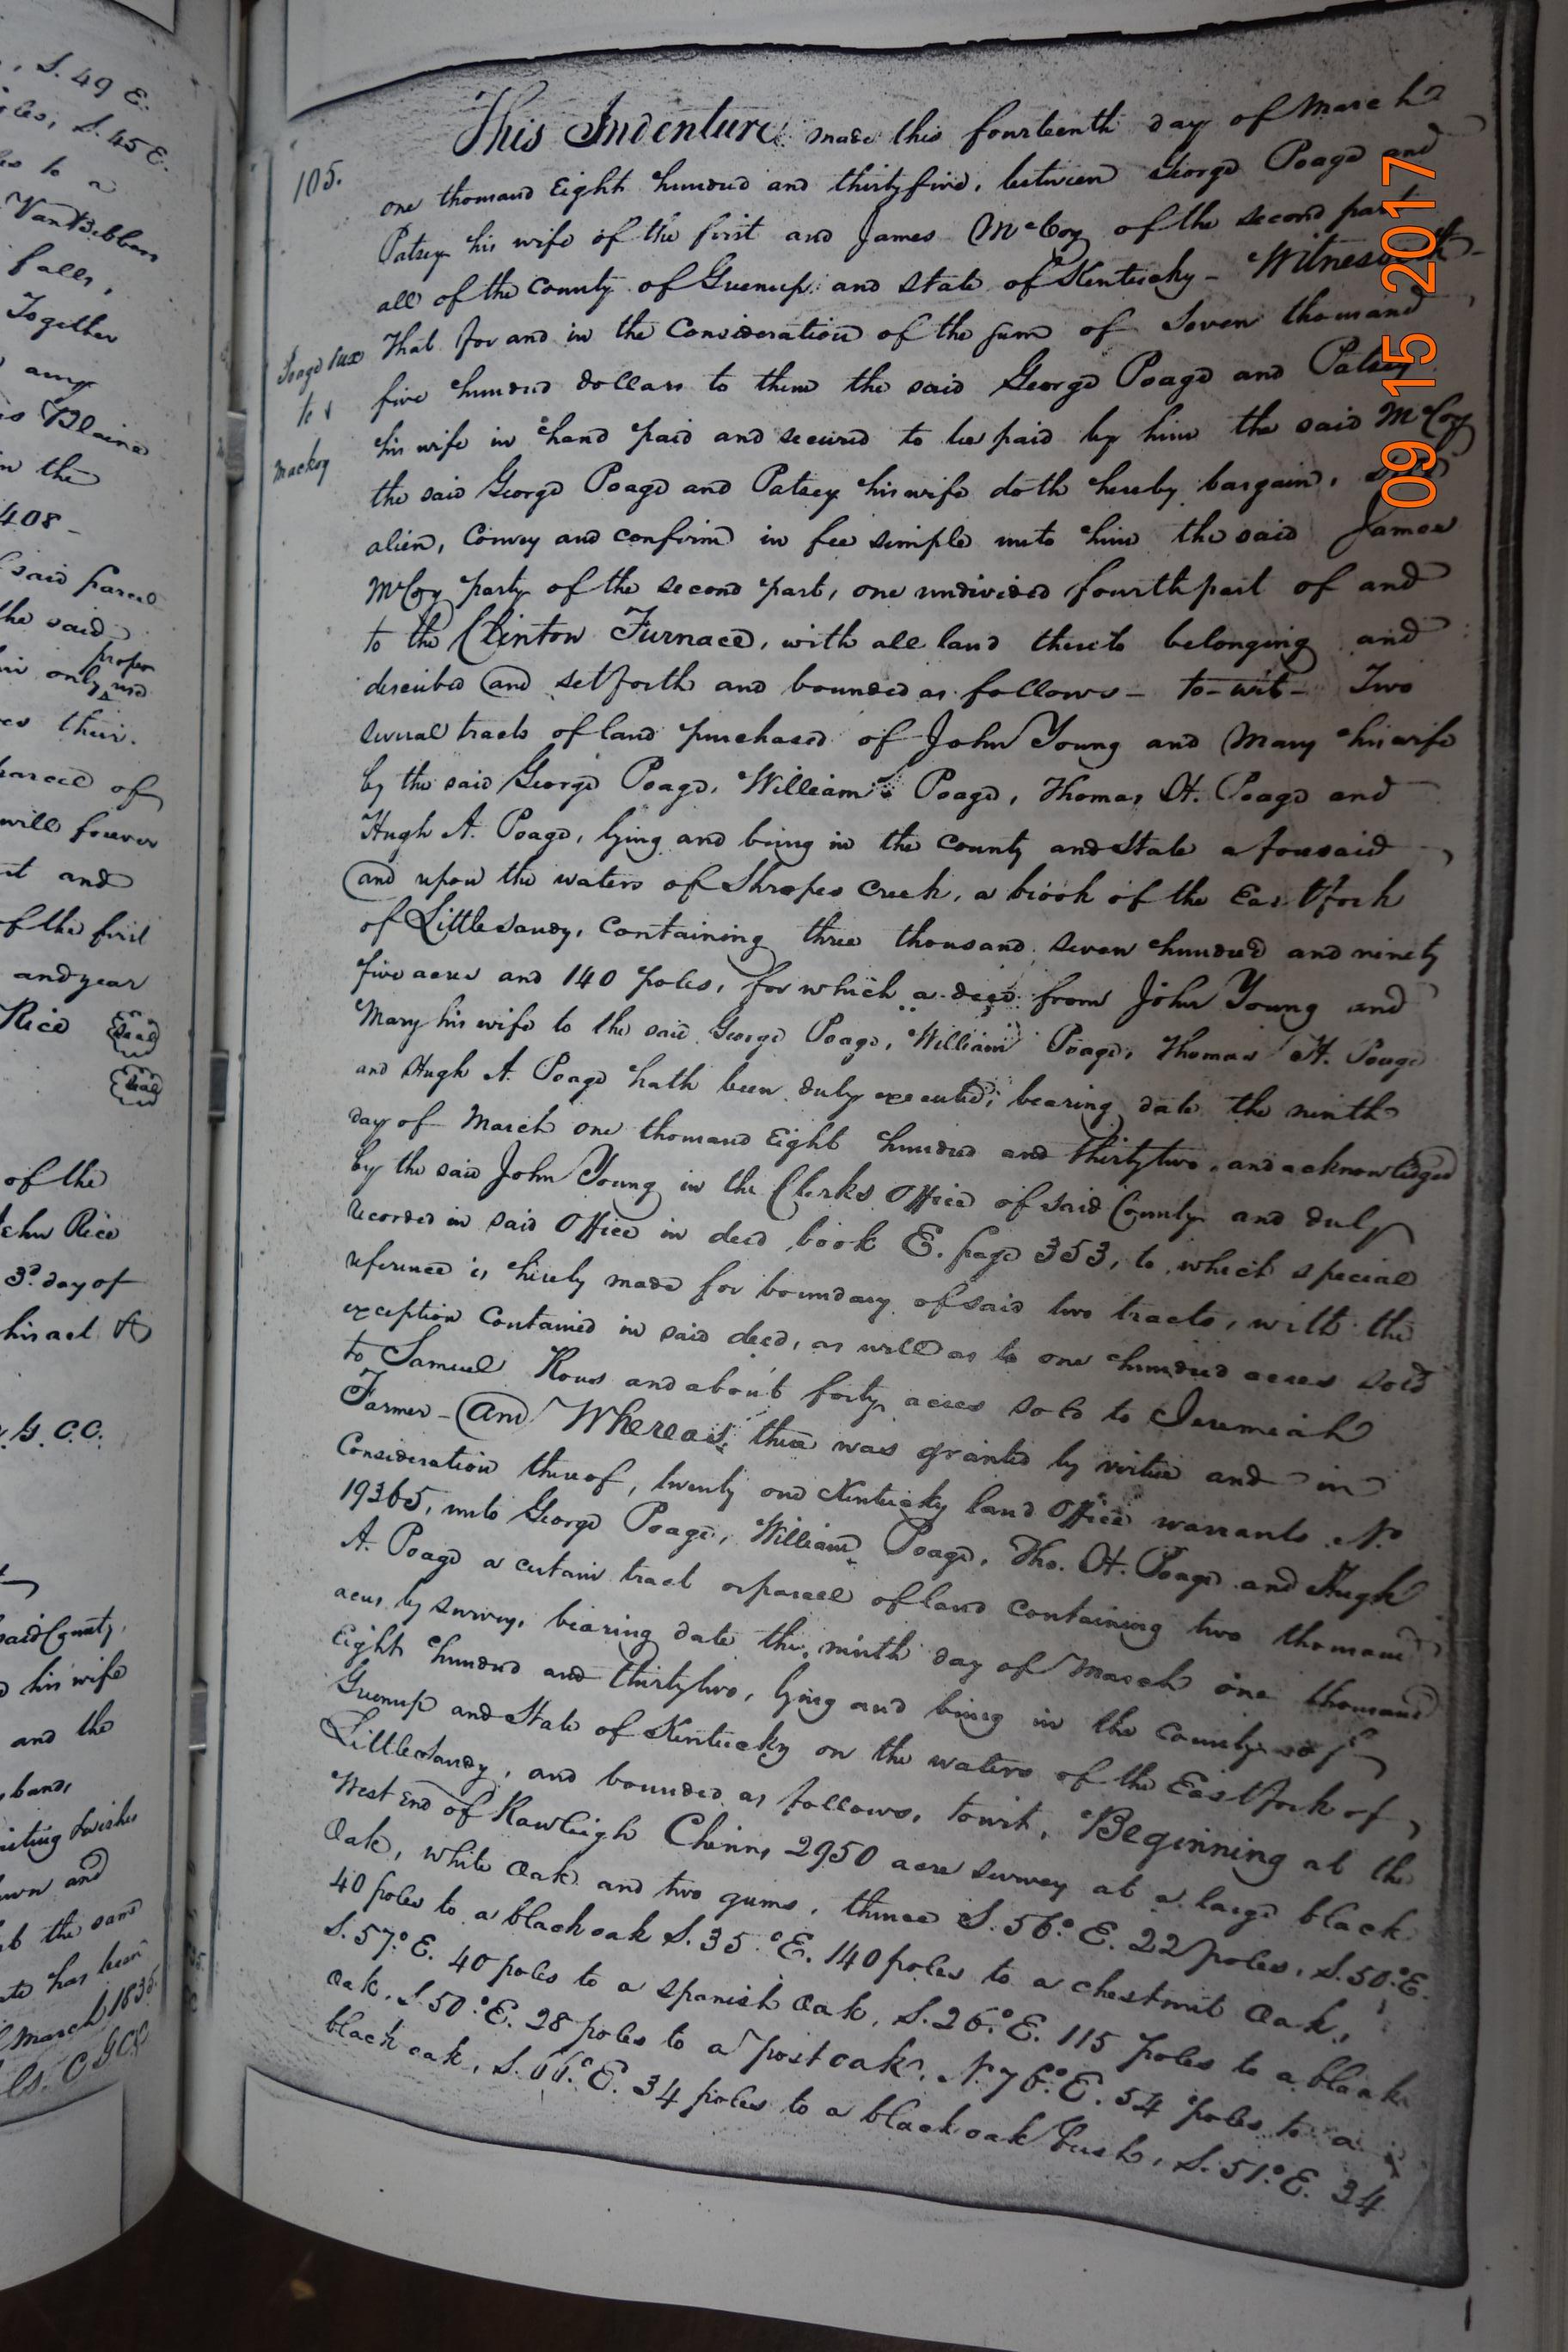 , S. 49 E.
S. 45 E.
to a
VanBibbers
falls,
Together
any
Blaine
in the
408 -
said parcel
the said
proper
only
their.
parcel of
will forever
and
of the first
and year
Rice Seal
Seal
of the
John Rice
3d. day of
his act &
G. C. C.
said County,
his wife
and the
and
has been
March 1835.
105.
Poage & ux
to
Mackoy
This Indenture made this fourteenth day of March
one thousand Eight hundred and thirtyfive, between George Poage and
Patsey his wife of the first and James McCoy of the second part
all of the County of Greenup and State of Kentucky - Witnesseth -
That for and in the Consideration of the sum of Seven thousand
five hundred dollars to them the said George Poage and Patsey
his wife in hand paid and secured to be paid by him the said McCoy
the said George Poage and Patsey his wife doth hereby bargain, sell
alien, Convey and confirm in fee simple unto him the said James
McCoy party of the second part, one undivided fourth part of and
to the Clinton Furnace, with all land thereto belonging and
described and set forth and bounded as follows - to-wit - Two
several tracts of land purchased of John Young and Mary his wife
by the said George Poage, William Poage, Thomas H. Poage and
Hugh A. Poage, lying and being in the County and State aforesaid
and upon the waters of Shropes Creek, a brook of the East fork
of Little Sandy, Containing three thousand seven hundred and ninety
five acres and 140 poles, for which a deed from John Young and
Mary his wife to the said George Poage, William Poage, Thomas H. Poage
and Hugh A. Poage hath been duly executed, bearing date the ninth
day of March one thousand Eight hundred and thirtytwo, and acknowledged
by the said John Young in the Clerks Office of said County and duly
recorded in said Office in deed book E. page 353, to which special
reference is hereby made for boundary of said two tracts, with the
exception Contained in said deed, as well as to one hundred acres sold
to Samuel Rous and about forty acres sold to Jeremiah
Farmer - And Whereas, there was granted by virtue and in
Consideration thereof, twenty one Kentucky land Office warrants No.
19365, unto George Poage, William Poage, Tho. H. Poage and Hugh
A. Poage a certain tract or parcel of land containing two thousand
acres by survey, bearing date the ninth day of March one thousand
Eight hundred and thirtytwo, lying and being in the County of
Greenup and State of Kentucky on the waters of the East fork of
Little Sandy, and bounded as follows, towit, Beginning at the
West End of Rawleigh Chinns 2950 acre survey at a large black
Oak, white Oak and two gums, thence S. 56° E. 22 poles, S. 50° E.
40 poles to a black oak S. 35° E. 140 poles to a chestnut Oak,
S. 57° E. 40 poles to a spanish Oak, S. 26° E. 115 poles to a black
Oak, S. 50° E. 28 poles to a post oak, N. 76° E. 54 poles to a
black oak, S. 66° E. 34 poles to a black oak bush, S. 51° E. 34
09 15 2017